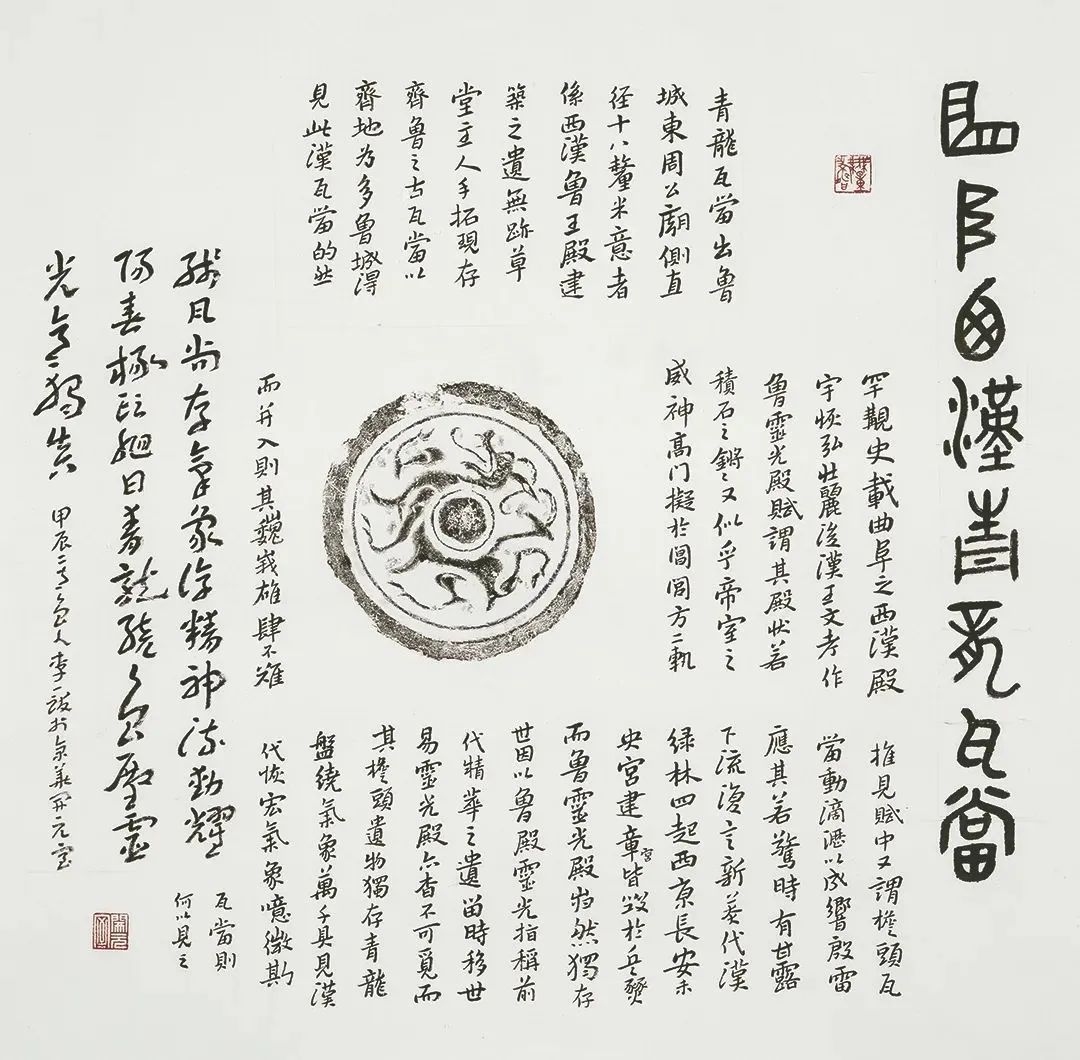 曲阜西漢青龍瓦當
青龍瓦當出魯
城東周公廟側直
徑十八釐米意者
係西漢魯王殿建
築之遺無跡草
堂主人手拓現存
齊魯之古瓦當以
齊地為多魯城得
見此漢瓦當的然
罕覯史載曲阜之西漢殿
宇恢弘壯麗後漢王文考作
魯靈光殿賦謂其殿狀若
積石之鏘〻又似乎帝室之
威神高门擬於閶闔方二軌
而并入則其巍峩雄肆不難
推見賦中又謂檐頭瓦
當動滴瀝以成響殷雷
應其若驚時有甘露
下流復言新莽代漢
綠林四起西京長安未
央宮建章宮皆毀於兵燹
而魯靈光殿巋然獨存
世因以魯殿靈光指稱前
代精華之遺留時移世
易靈光殿亦杳不可覓而
其檐頭遺物獨存青龍
盤繞氣象萬千具見漢
代恢宏氣象噫微斯
瓦當則
何以見之
尚存氣象 精神流動耀
陽春 日青龍繞 靈
光 獨
甲辰 李一 於京華開元室